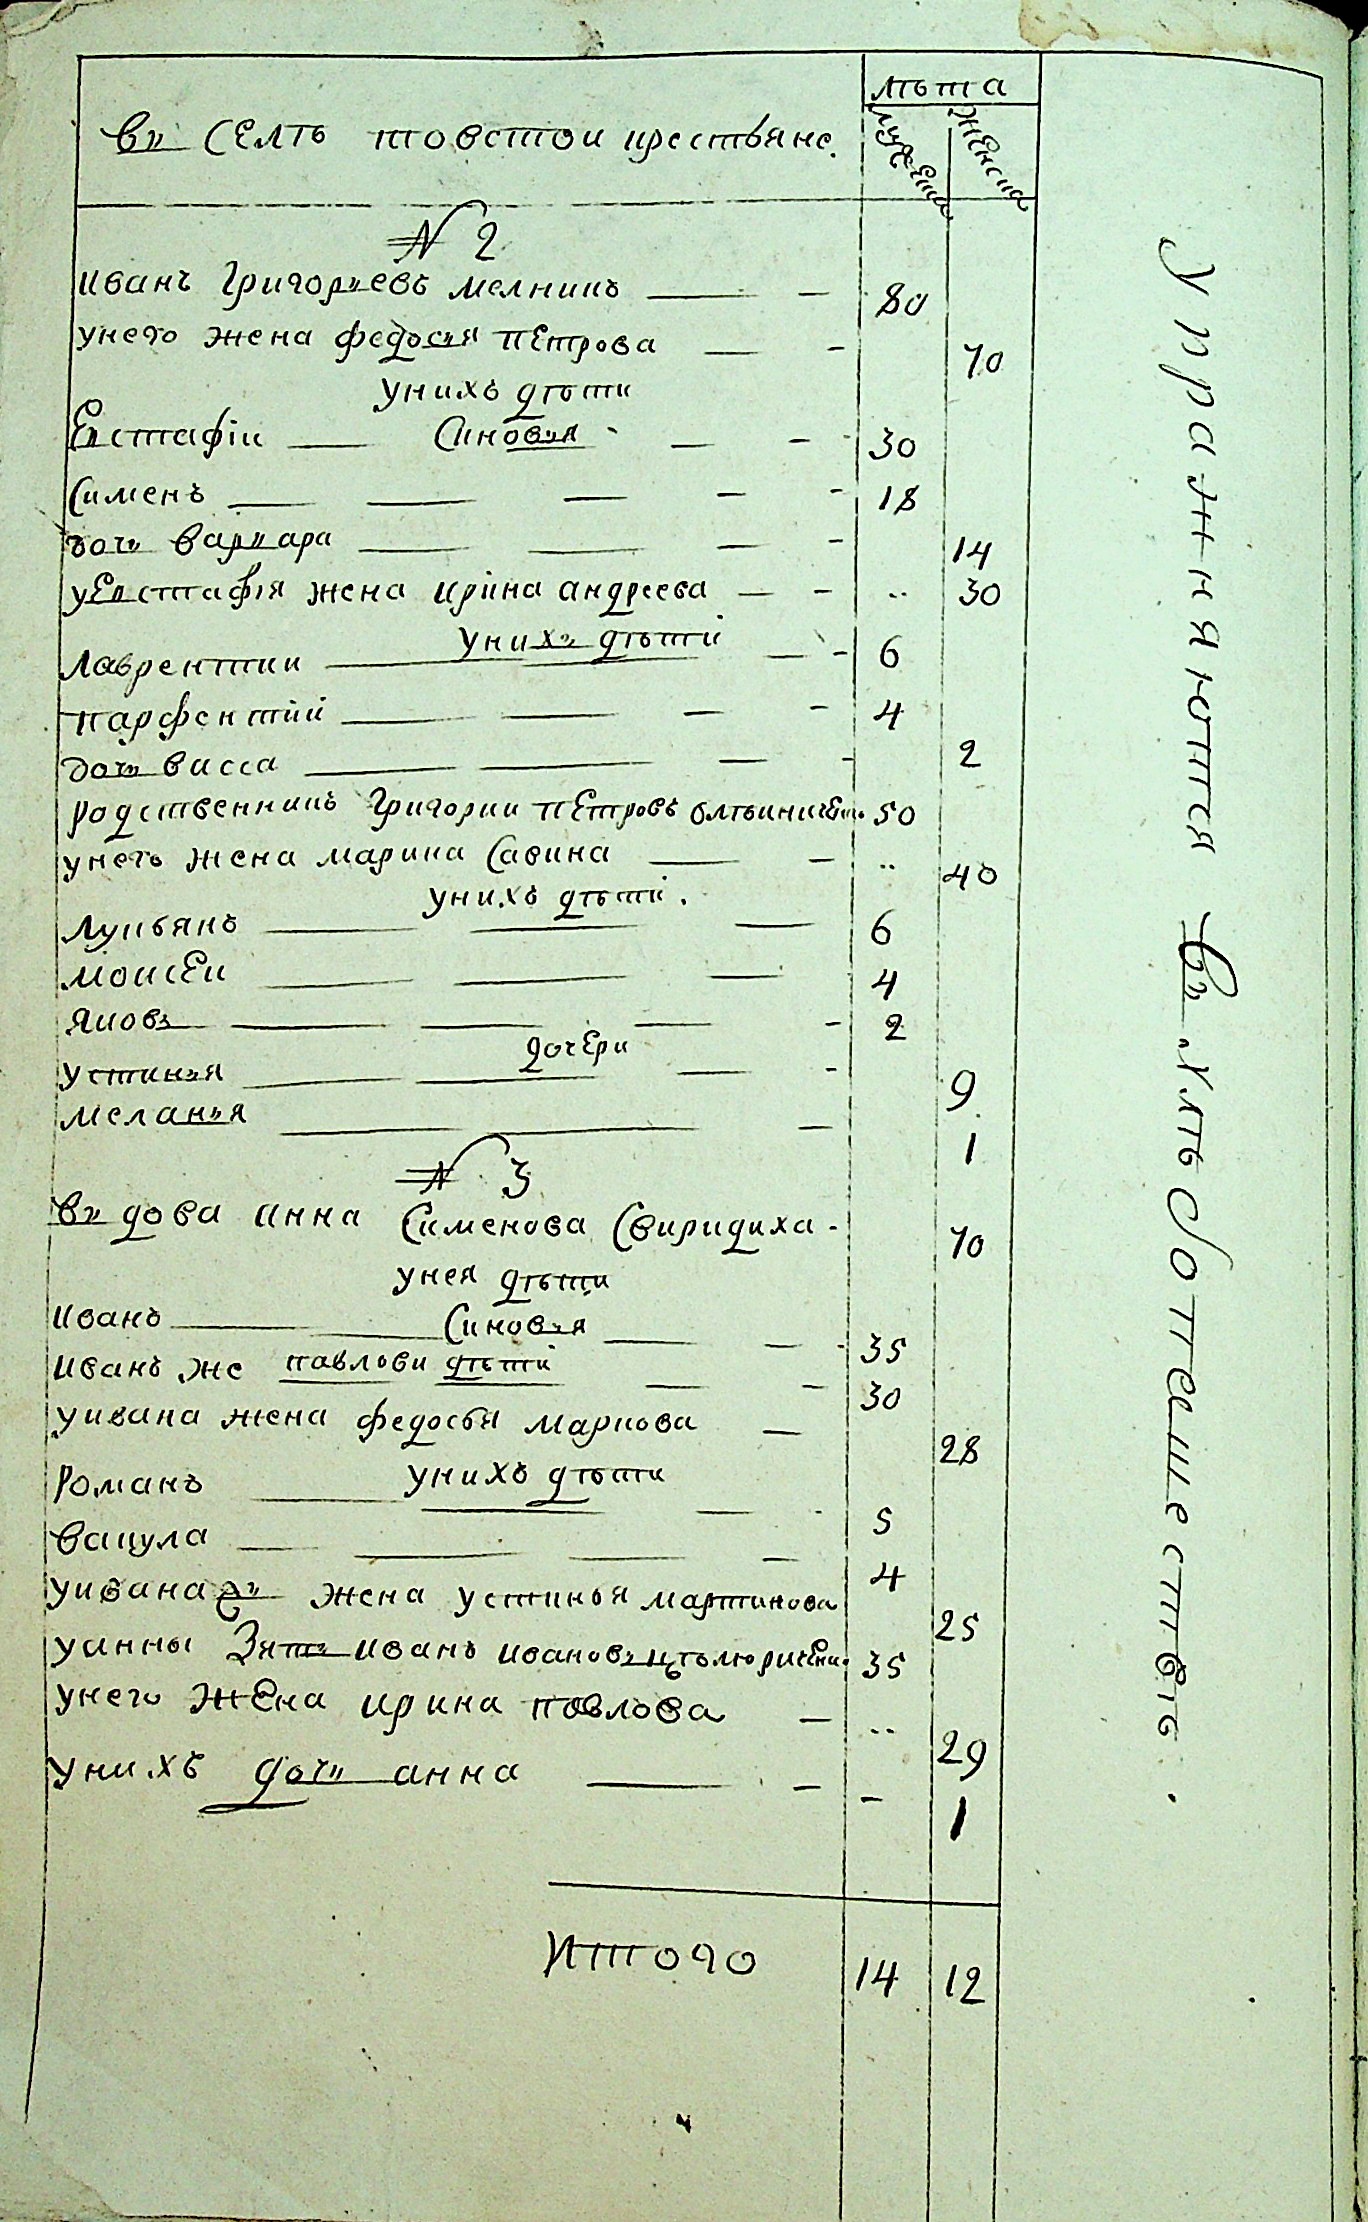 лѣта
въ селѣ товстои крестьяне.
мужеска
женска
№ 2
иванъ григорьевъ мелникъ 80
унего жена федосья петрова 70
унихъ дѣти
Евстафіи Синовья 30
Сименъ 18
дочь варвара 14
уЕвстафія жена ирина андреева 30
унихъ дѣти
лаврентии 6
парфентий 4
дочь васса 2
родственникъ григории петровъ 50
унего жена марина Савина 40
унихъ дѣти.
лукьянъ 6
моисеи 4
яковъ 2
дочери
устинья 9
меланья 1
№ 3
въдова анна Сименова Свиридиха 70
унея дѣти
иванъ Синовья 35
иванъ же павлови дѣти 30
уивана жена федосья маркова 28
унихъ дѣти
романъ 5
вакула 4
уивана жена устинья мартинова 25
уанны Зять иванъ ивановъ 35
унего жена ирина павлова 29
унихъ дочь анна 1
Итого 14 12
Упражняются въ хлѣбопашествѣ.